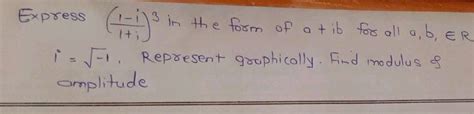 Express (1-i/1+i)³ in the form of a + ib for all a, b, ∈ R
i = √-1. Represent graphically. Find modulus &
amplitude